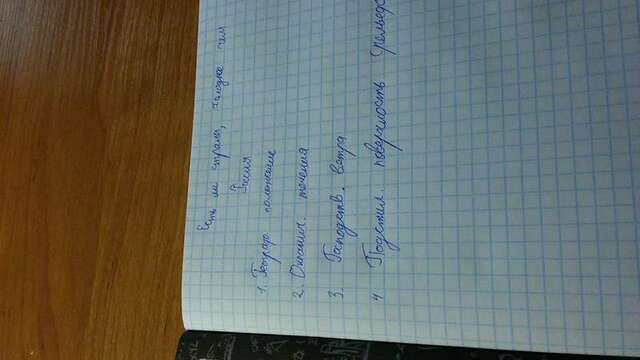 Есть ли страны, холоднее чем
Россия
1. Географ. положение
2. Океанич. течения
3. Господств. ветра
4 Подстил. поверхность (рельеф